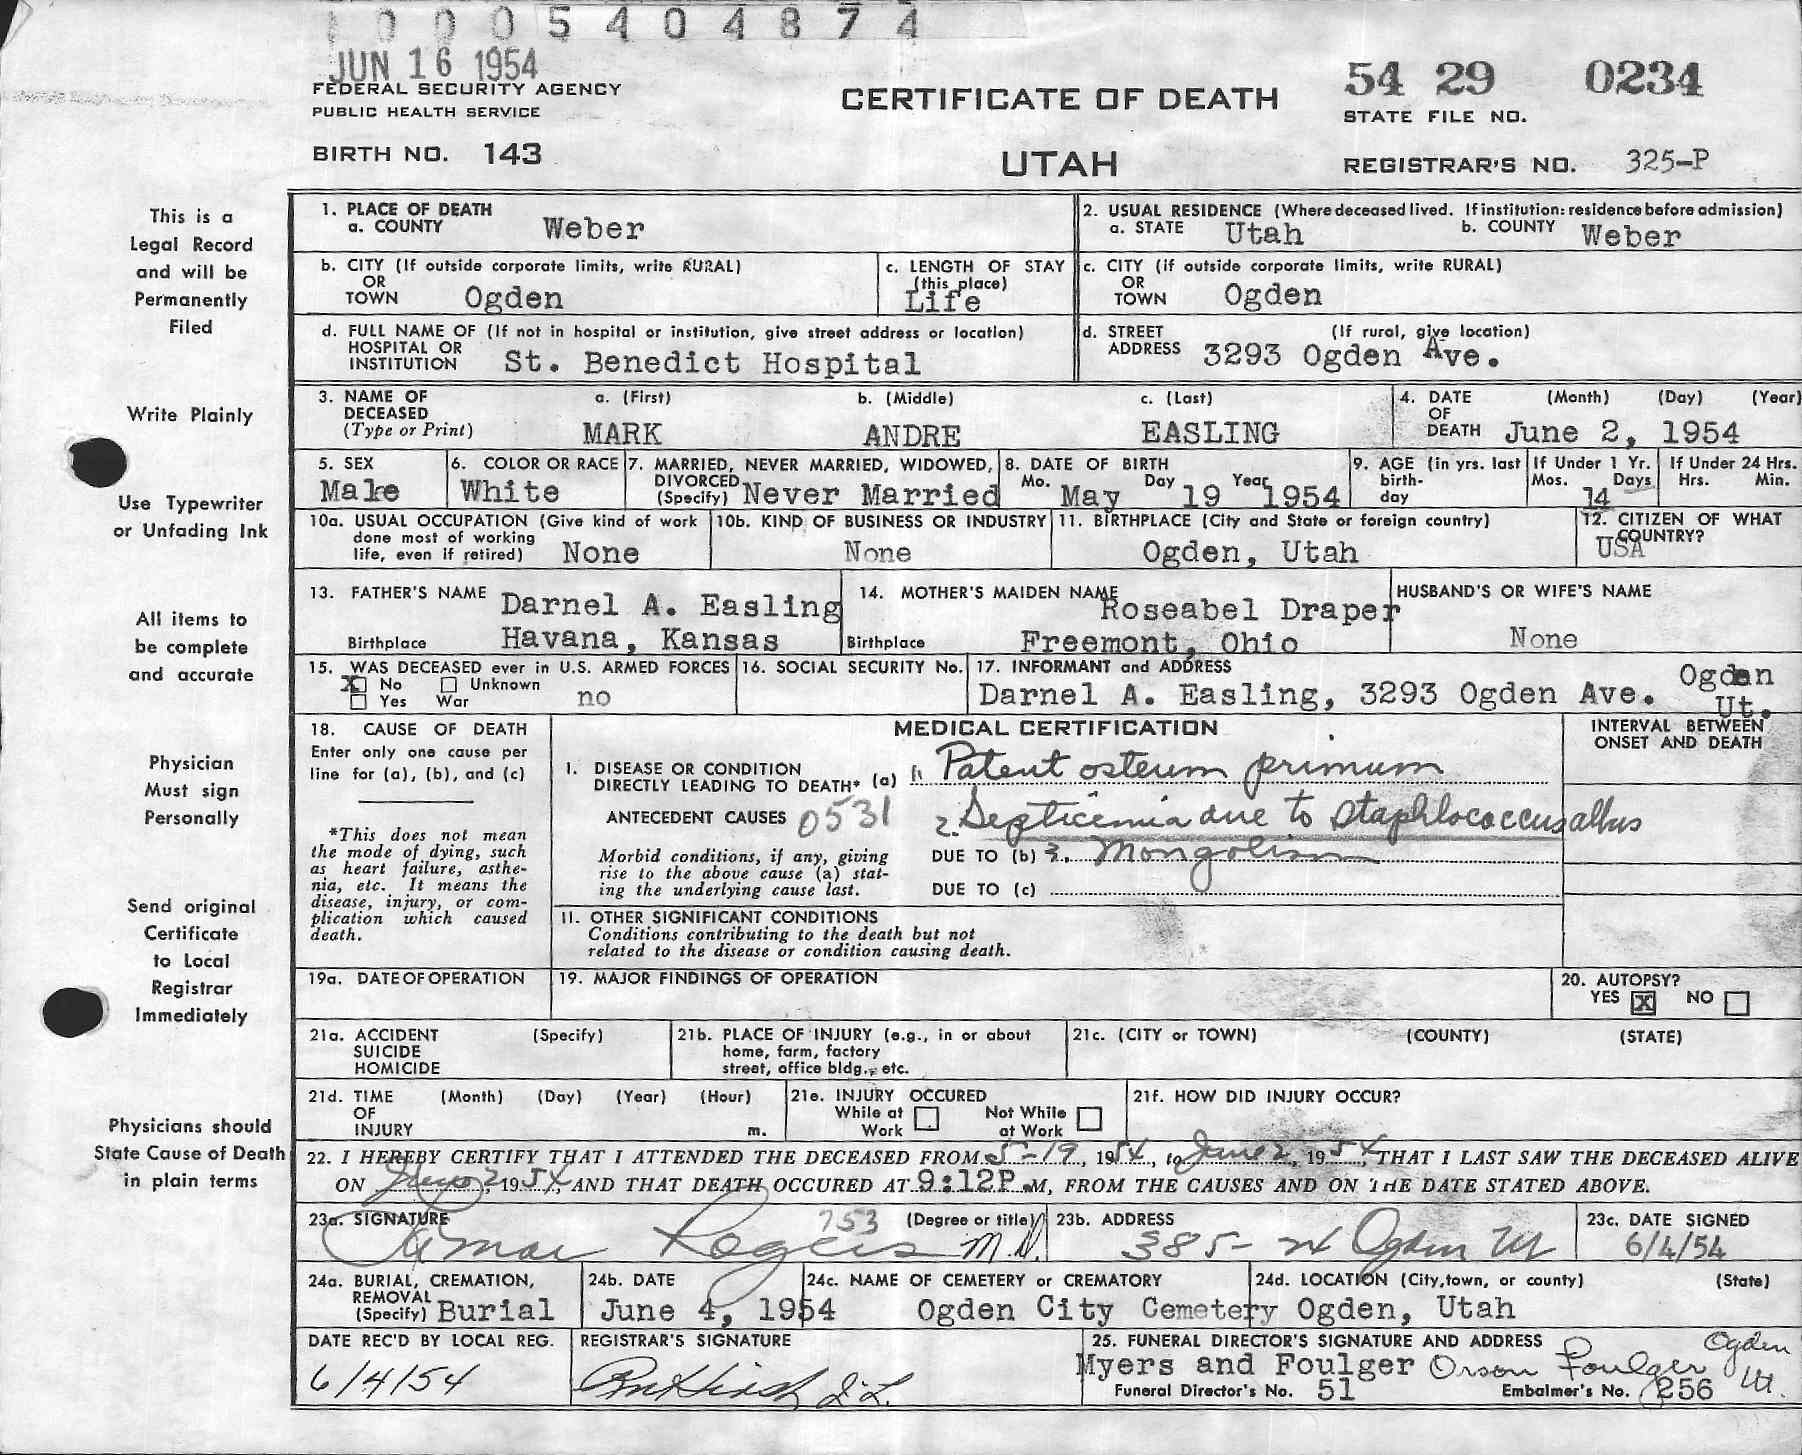 0005404874
JUN 16 1954
FEDERAL SECURITY AGENCY
PUBLIC HEALTH SERVICE
BIRTH NO. 143
CERTIFICATE OF DEATH
UTAH
54 29 0234
STATE FILE NO.
REGISTRAR'S NO. 325-P
This is a
Legal Record
and will be
Permanently
Filed
Write Plainly
Use Typewriter
or Unfading Ink
All items to
be complete
and accurate
Physician
Must sign
Personally
Send original
Certificate
to Local
Registrar
Immediately
Physicians should
State Cause of Death
in plain terms
1. PLACE OF DEATH
a. COUNTY Weber
2. USUAL RESIDENCE (Where deceased lived. If institution: residence before admission)
a. STATE Utah b. COUNTY Weber
b. CITY (If outside corporate limits, write RURAL)
OR
TOWN Ogden
c. LENGTH OF STAY
(this place)
Life
c. CITY (if outside corporate limits, write RURAL)
OR
TOWN Ogden
d. FULL NAME OF (If not in hospital or institution, give street address or location)
HOSPITAL OR
INSTITUTION St. Benedict Hospital
d. STREET (If rural, give location)
ADDRESS 3293 Ogden Ave.
3. NAME OF a. (First) b. (Middle) c. (Last)
DECEASED
(Type or Print) MARK ANDRE EASLING
4. DATE (Month) (Day) (Year)
OF
DEATH June 2, 1954
5. SEX
Male
6. COLOR OR RACE
White
7. MARRIED, NEVER MARRIED, WIDOWED,
DIVORCED
(Specify) Never Married
8. DATE OF BIRTH
Mo. May Day 19 Year 1954
9. AGE (in yrs. last
birth-
day
If Under 1 Yr.
Mos. Days
14
If Under 24 Hrs.
Hrs. Min.
10a. USUAL OCCUPATION (Give kind of work
done most of working
life, even if retired) None
10b. KIND OF BUSINESS OR INDUSTRY
None
11. BIRTHPLACE (City and State or foreign country)
Ogden, Utah
12. CITIZEN OF WHAT
COUNTRY?
USA
13. FATHER'S NAME Darnel A. Easling
Birthplace Havana, Kansas
14. MOTHER'S MAIDEN NAME Roseabel Draper
Birthplace Freemont, Ohio
HUSBAND'S OR WIFE'S NAME
None
15. WAS DECEASED ever in U.S. ARMED FORCES
X No Unknown
Yes War no
16. SOCIAL SECURITY No.
17. INFORMANT and ADDRESS
Darnel A. Easling, 3293 Ogden Ave. Ogden
Ut.
18. CAUSE OF DEATH
Enter only one cause per
line for (a), (b), and (c)
*This does not mean
the mode of dying, such
as heart failure, asthe-
nia, etc. It means the
disease, injury, or com-
plication which caused
death.
MEDICAL CERTIFICATION
INTERVAL BETWEEN
ONSET AND DEATH
I. DISEASE OR CONDITION
DIRECTLY LEADING TO DEATH* (a) 1. Patent osteum primum
ANTECEDENT CAUSES 0531 2. Septicemia due to Staphlococcus albus
Morbid conditions, if any, giving
rise to the above cause (a) stat-
ing the underlying cause last.
DUE TO (b) 3. Mongolism
DUE TO (c)
II. OTHER SIGNIFICANT CONDITIONS
Conditions contributing to the death but not
related to the disease or condition causing death.
19a. DATE OF OPERATION
19. MAJOR FINDINGS OF OPERATION
20. AUTOPSY?
YES X NO
21a. ACCIDENT (Specify)
SUICIDE
HOMICIDE
21b. PLACE OF INJURY (e.g., in or about
home, farm, factory
street, office bldg., etc.
21c. (CITY or TOWN) (COUNTY) (STATE)
21d. TIME (Month) (Day) (Year) (Hour)
OF
INJURY m.
21e. INJURY OCCURED
While at Not While
Work at Work
21f. HOW DID INJURY OCCUR?
22. I HEREBY CERTIFY THAT I ATTENDED THE DECEASED FROM 5-19, 1954, to June 2, 1954, THAT I LAST SAW THE DECEASED ALIVE
ON June 2 1954, AND THAT DEATH OCCURED AT 9:12P.M, FROM THE CAUSES AND ON THE DATE STATED ABOVE.
23a. SIGNATURE 753 (Degree or title)
Lamar Rogers M.D.
23b. ADDRESS
385-24 Ogden Ut
23c. DATE SIGNED
6/4/54
24a. BURIAL, CREMATION,
REMOVAL
(Specify) Burial
24b. DATE
June 4, 1954
24c. NAME OF CEMETERY or CREMATORY
Ogden City Cemetery
24d. LOCATION (City, town, or county) (State)
Ogden, Utah
DATE REC'D BY LOCAL REG.
6/4/54
REGISTRAR'S SIGNATURE
25. FUNERAL DIRECTOR'S SIGNATURE AND ADDRESS
Myers and Foulger Orson Foulger Ogden Ut.
Funeral Director's No. 51 Embalmer's No. 256